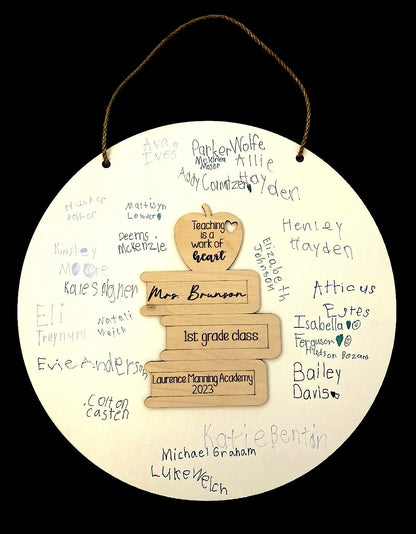 Ava
Ives
Parker Wolfe
McKinna
Moser
Allie
Hayden
Addy Comatzer
Mattisyn
Lower
Deems
McKenzie
Kinsley
Moore
Eli
Troynum
Natali
Veich
Evie Anderson
Colton
Casten
Teaching
is a
work of
heart
Mrs. Brunson
1st grade class
Laurence Manning Academy
2023
Elizabeth
Johnson
Henley
Hayden
Atticus
Estes
Isabella
Ferguson
Hudson
Bailey
Davis
Katie Benton
Michael Graham
Luke Welch